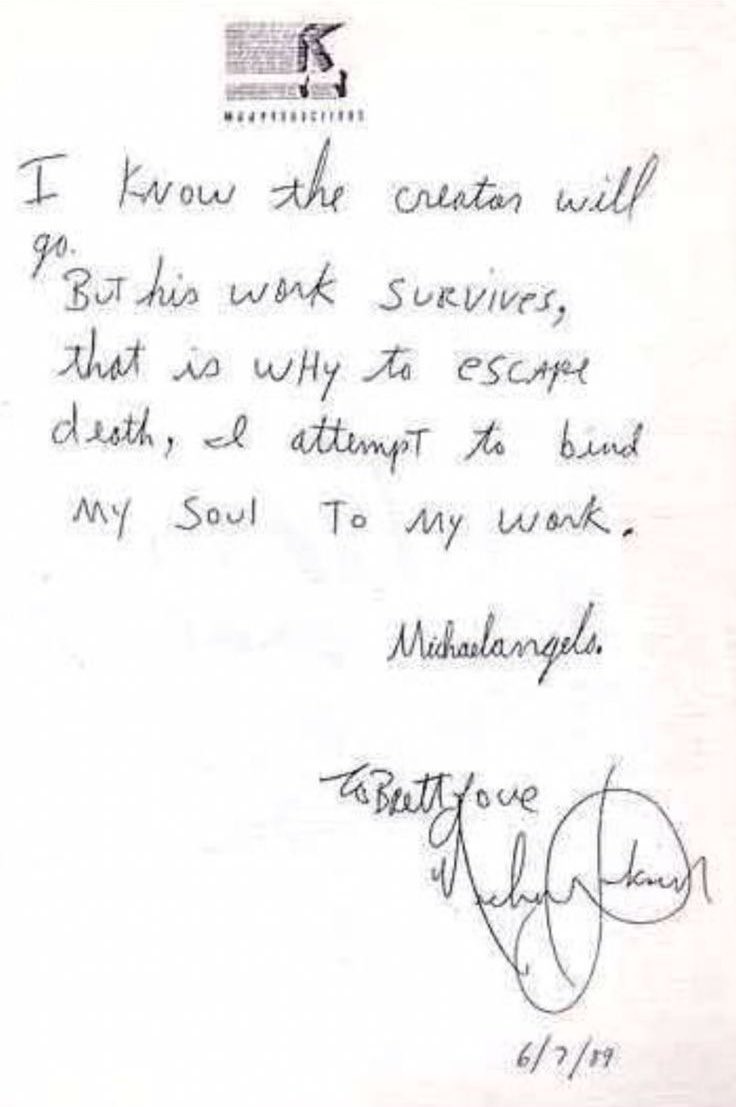 MJJ PRODUCTIONS
I Know the creator will
go.
But his work SURVIVES,
that is WHY to ESCAPE
death, I attempt to bind
MY Soul To MY work.
Michaelangelo.
To Brett Love
Michael Jackson
6/7/89